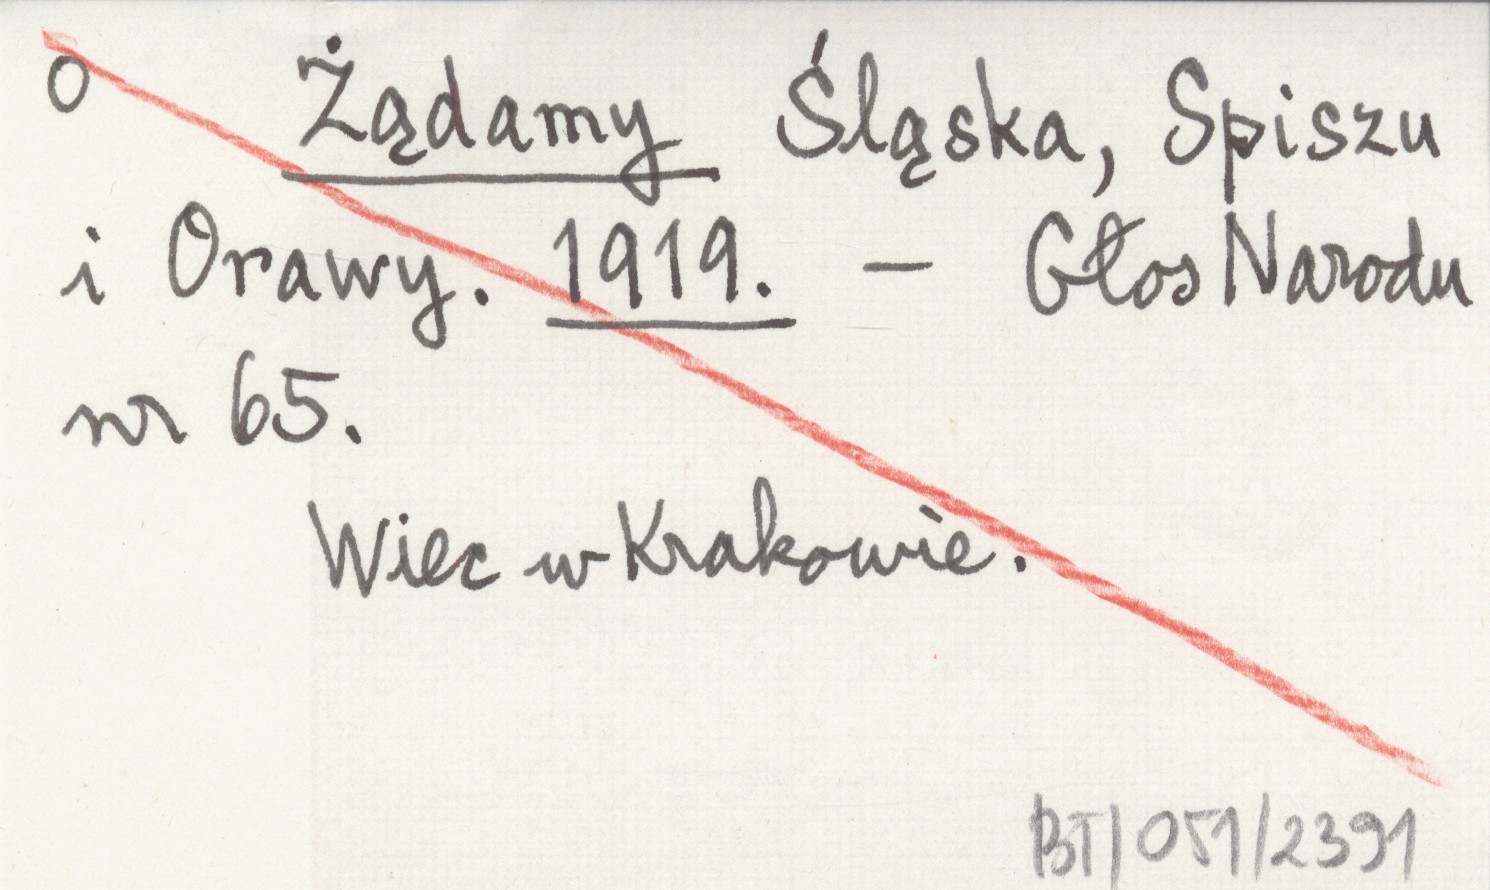 o Żądamy Śląska, Spiszu
i Orawy. 1919. – Głos Narodu
nr 65.
Wiec w Krakowie.
BT/051/2391